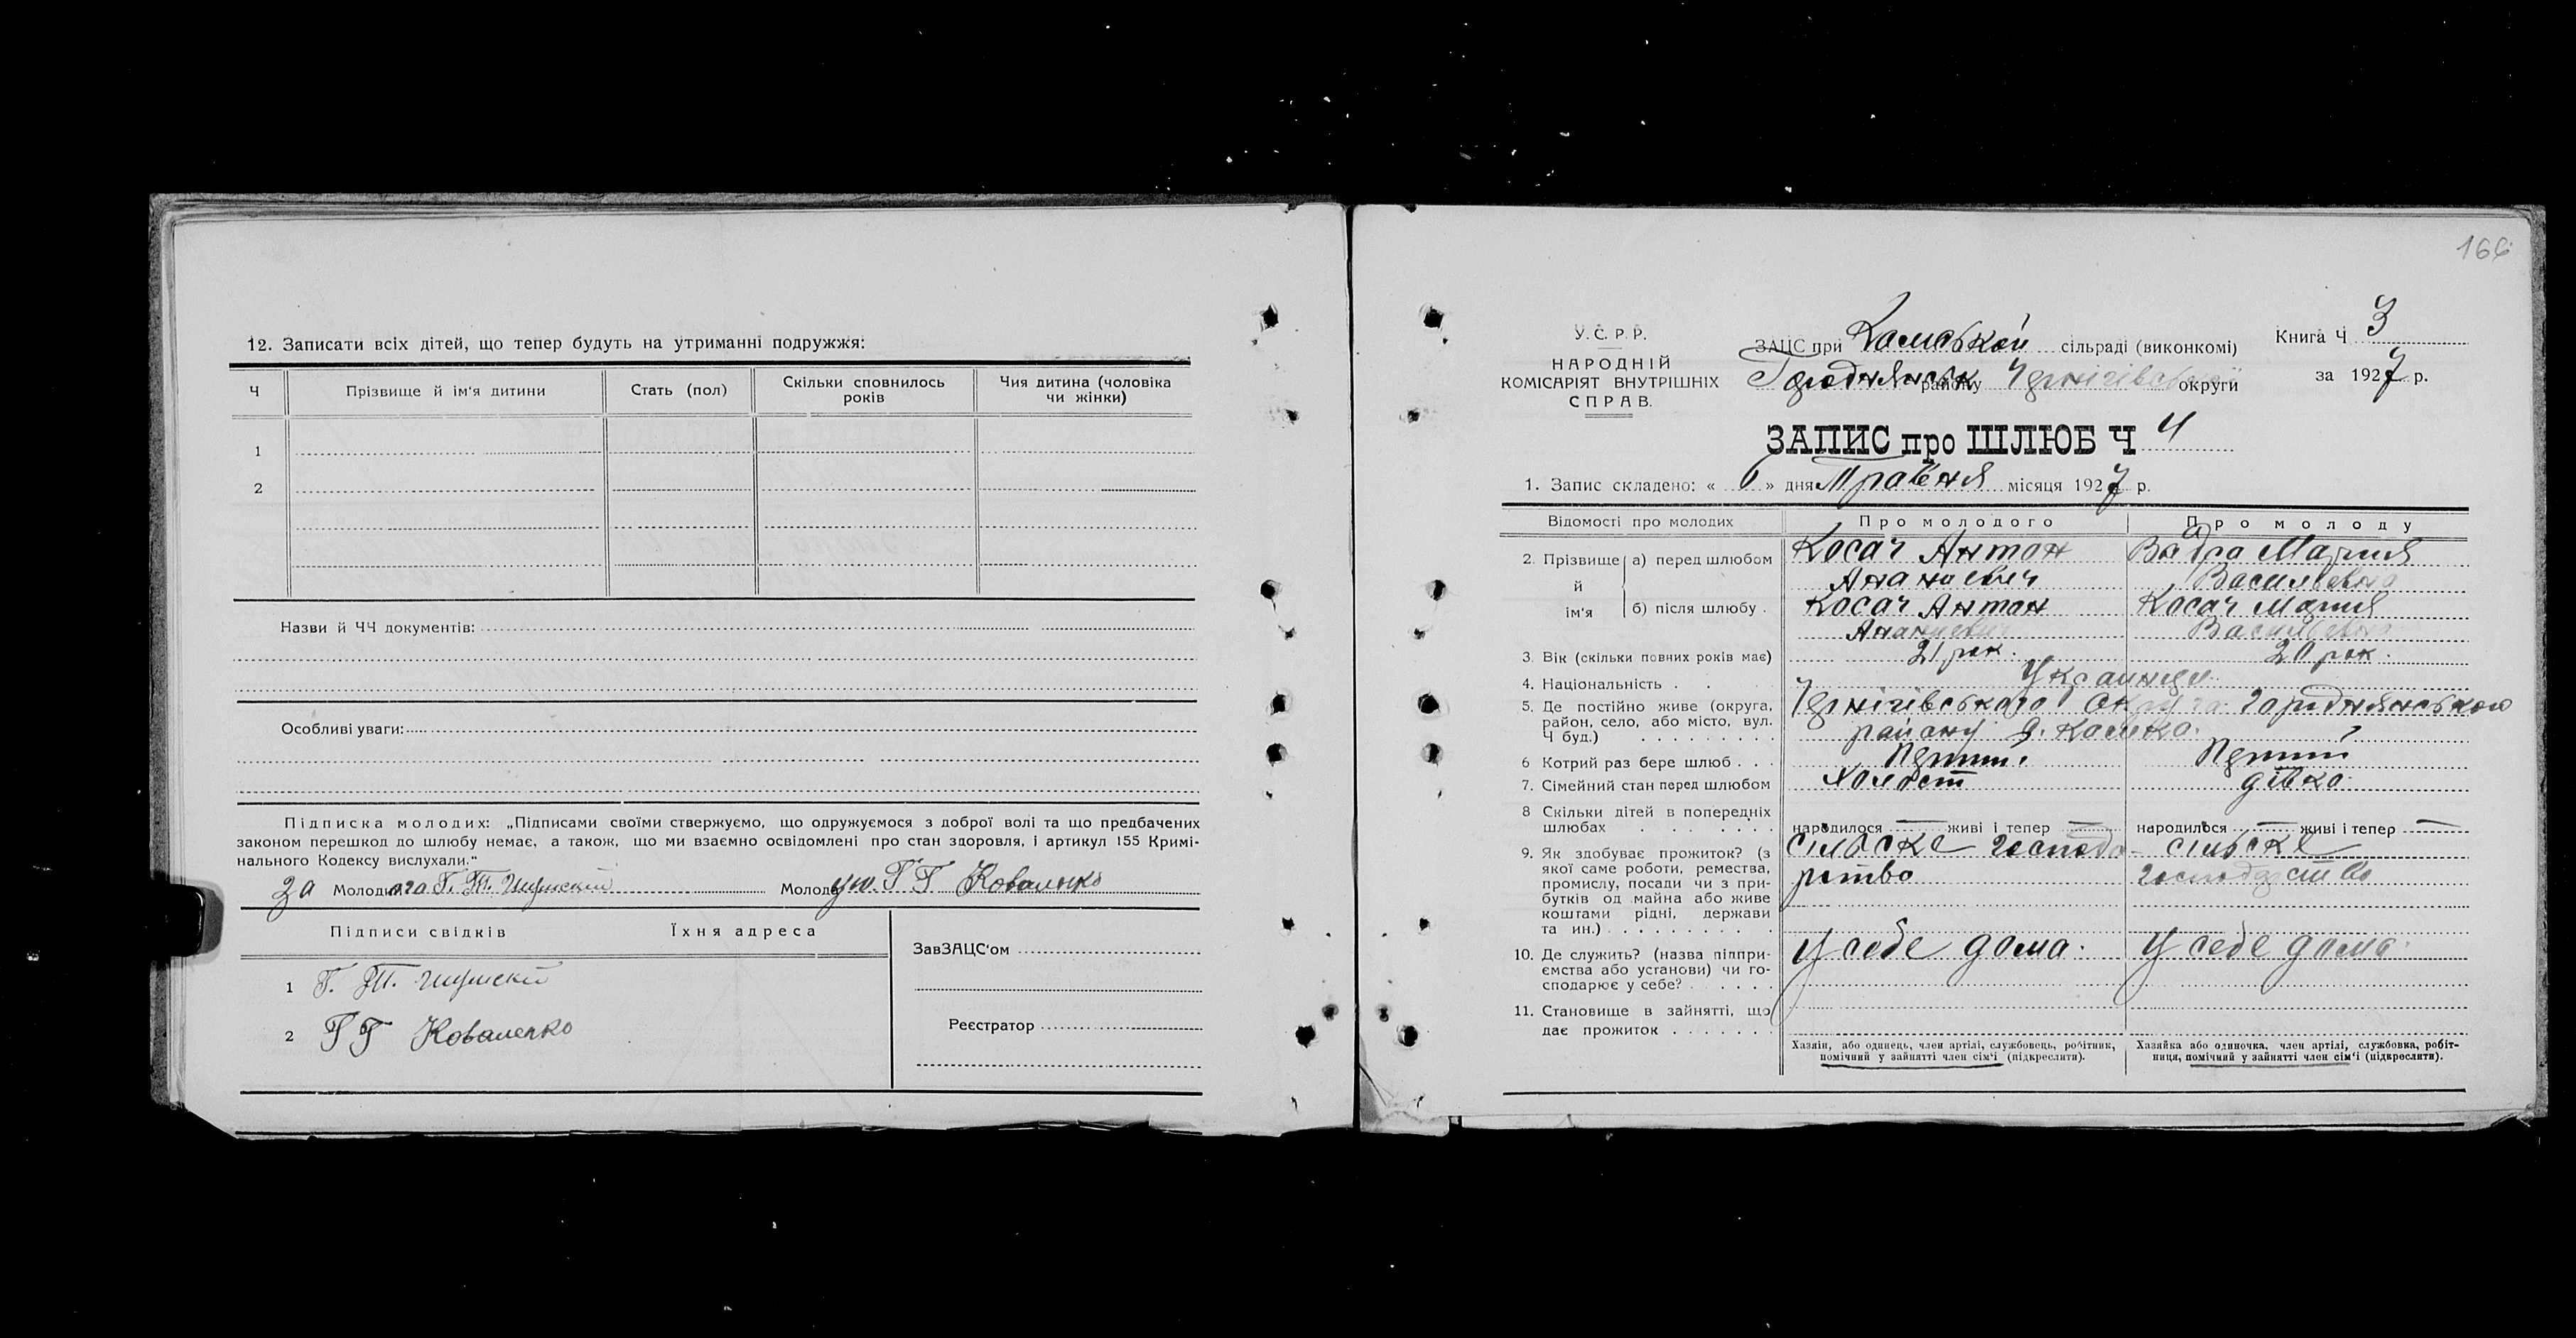 12. Записати всіх дітей, що тепер будуть на утриманні подружжя:
Ч Прізвище й ім'я дитини Стать (пол) Скільки сповнилось років Чия дитина (чоловіка чи жінки)
1
2
Назви й ЧЧ документів:
Особливі уваги:
Підписка молодих: „Підписами своїми стверджуємо, що одружуємося з доброї волі та що предбачених
законом перешкод до шлюбу немає, а також, що ми взаємно освідомлені про стан здоровля, і артикул 155 Кримі-
нального Кодексу вислухали.“
За Молодого Г. Т. Молоду Г Г Коваленко
Підписи свідків Їхня адреса
ЗавЗАЦС'ом
1 Г. Т.
2 Г Г Коваленко
Реєстратор
166
У.С.Р.Р.
НАРОДНІЙ
КОМІСАРІЯТ ВНУТРІШНІХ
СПРАВ.
ЗАЦС при сільраді (виконкомі)
Городнянськ району Чернігівської округи
Книга Ч 3
за 1927 р.
ЗАПИС про ШЛЮБ Ч 4
1. Запис складено: « 6 » дня Травня місяця 1927 р.
Відомості про молодих Про молодого Про молоду
2. Прізвище й ім'я а) перед шлюбом Косач Антон Мария
Ананиевич Васильевна
б) після шлюбу . Косач Антон Косач Мария
Ананиевич Васильевна
3. Вік (скільки повних років має) 21 рок. 20 рок.
4. Національність . . Украинци
5. Де постійно живе (округа, район, село, або місто, вул. Ч буд.) Чернігівського Округа Городнянського
району
6 Котрий раз бере шлюб . . . Перший Перший
7. Сімейний стан перед шлюбом Холост дівка
8 Скільки дітей в попередніх шлюбах народилося — живі і тепер — народилося — живі і тепер —
9. Як здобуває прожиток? (з якої саме роботи, ремества, промислу, посади чи з при-бутків од майна або живе коштами рідні, держави та ин.) сільске господа- сільске
рство господарство
10. Де служить? (назва підпри-ємства або установи) чи го-сподарює у себе? у себе дома. у себе дома.
11. Становище в зайнятті, що дає прожиток
Хазяїн, або одинець, член артілі, службовець, робітник, помічний у зайнятті член сім'ї (підкреслити).
Хазяйка або одиночка, член артілі, службовка, робіт-ниця, помічний у зайнятті член сім'ї (підкреслити).